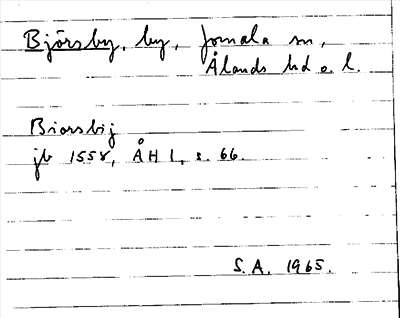 Björsby, by, Jomala sn,
Ålands hd o. l.
Biorsbij
jb 1558, ÅH 1, s. 66.
S.A. 1965.